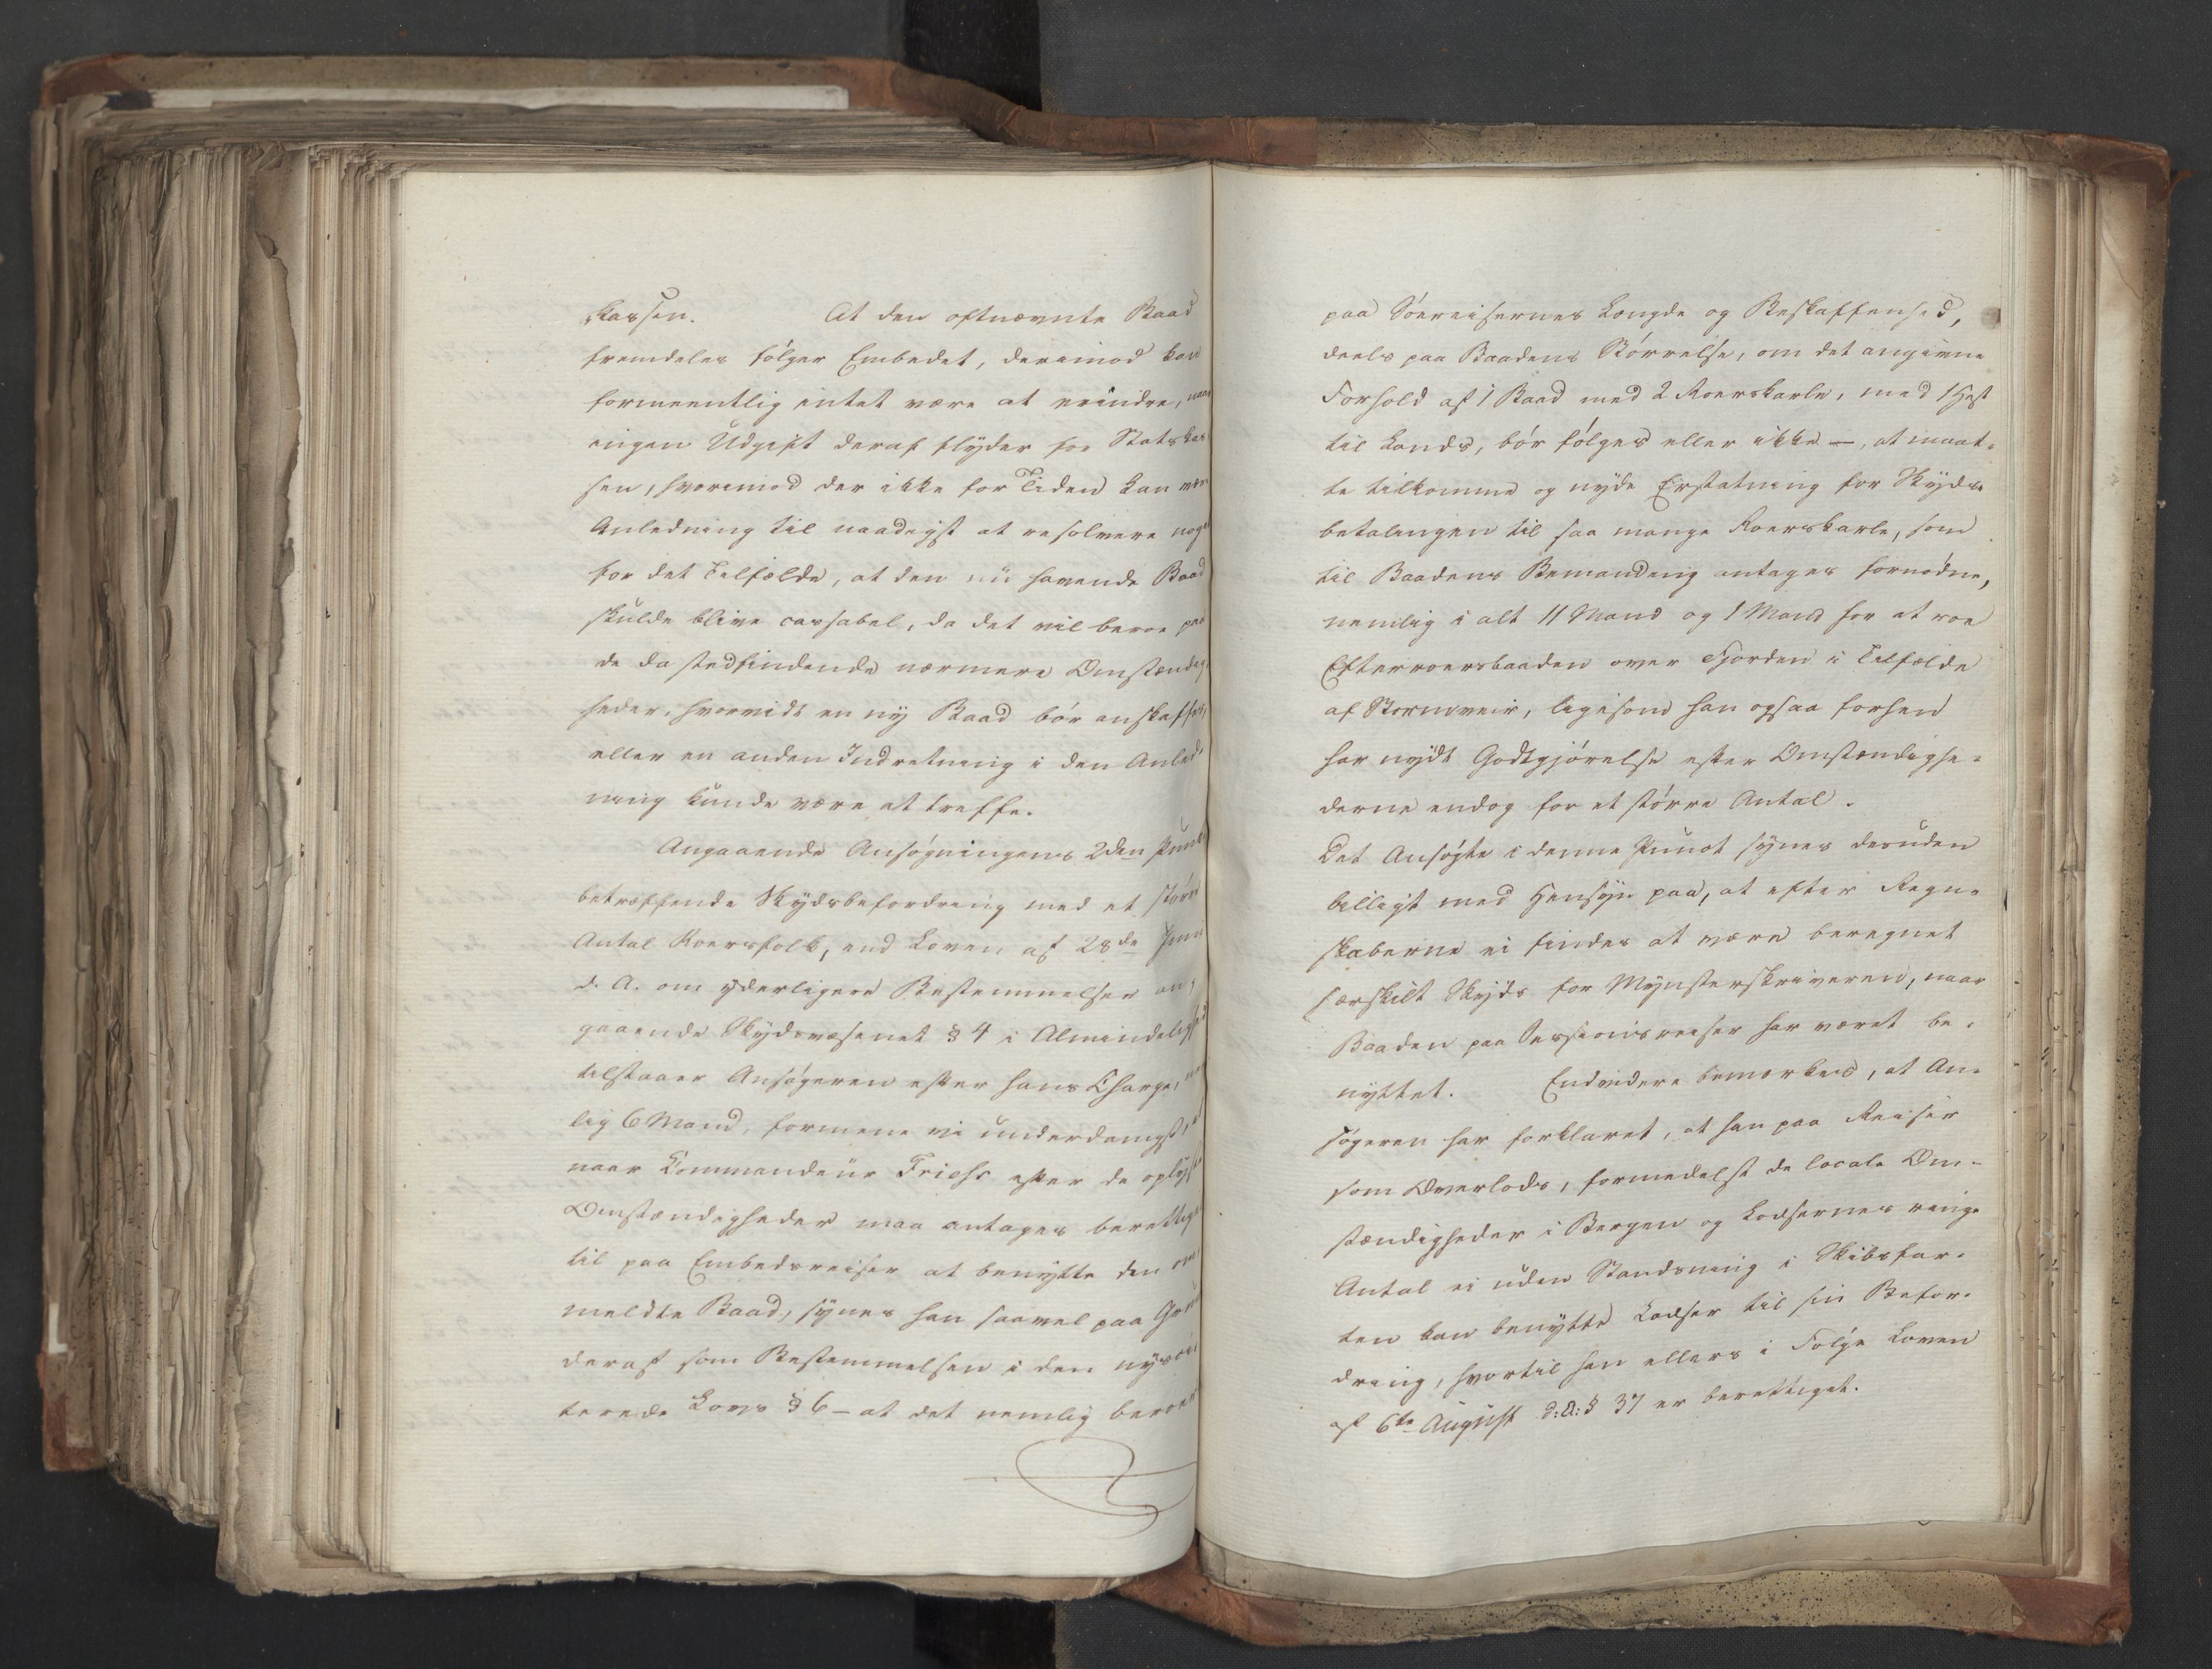 kassen. At den oftnævnte Baad
fremdeles følger Embedet, derimod kan
formeentlig intet være at erindre, naar
ingen Udgift deraf flyder for Statskas-
sen, hvorimod der ikke for Tiden kan være
Anledning til naadigst at resolvere noget
for det Tilfælde, at den nu havende Baad
skulde blive cassabel, da det vil beroe paa
de da stedfindende nærmere Omstændig-
heder, hvorvidt en ny Baad bør anskaffes,
eller en anden Indretning i den Anled-
ning kunde være at treffe.
Angaaende Ansøgningens 2den Punkt
betræffende Skydsbefordring med et større
Antal Roersfolk, end Loven af 28de Juni
d. A. om yderligere Bestemmelser an-
gaaende Skydsvæsenet § 4 i Almindelighed
tilstaaer Ansøgeren efter hans Charge, nem-
lig 6 Mand, formene vi underdanigst, at
naar Commandeur Friehs efter de oplyste
Omstændigheder maa antages berettiget
til paa Embedsreiser at benytte den om-
meldte Baad, synes han saavel paa Grund
deraf som Bestemmelsen i den nysci-
terede Lovs § 6 – at det nemlig beroer
paa Søereisernes Længde og Beskaffenhed,
deels paa Baadens Størrelse, om det angivne
Forhold af 1 Baad med 2 Roerskarle, mod 1 Hest
til Lands, bør følges eller ikke –, at maat-
te tilkomme og nyde Erstatning for Skyds-
betalingen til saa mange Roerskarle, som
til Baadens Bemanding antages fornødne,
nemlig i alt 11 Mand og 1 Mand for at roe
Efterroersbaaden over Fjorden i Tilfælde
af Stormveir, ligesom han ogsaa forhen
har nydt Godtgjørelse efter Omstændighe-
derne endog for et større Antal.
Det Ansøgte i denne Punct synes desuden
billigt med Hensyn paa, at efter Regn-
skaberne ei findes at være beregnet
særskilt Skyds for Mynsterskriveren, naar
Baaden paa Sessionsreiser har været be-
nyttet. Endvidere bemærkes, at An-
søgeren har forklaret, at han paa Reiser
som Overlods, formedelst de locale Om-
stændigheder i Bergen og Lodsernes ringe
Antal ei uden Standsning i Skibsfar-
ten kan benytte Lodser til sin Befor-
dring, hvortil han ellers i Følge Loven
af 6te August d:A: § 37 er berettiget.